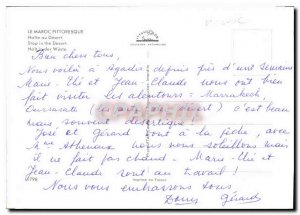 LE MAROC PITTORESQUE
Halte au Désert
Stop in the Desert
Halt in der Wüste
Bien chers tous,
Nous voilà à Agadir depuis près d'une semaine
Marie-Thé et Jean-Claude nous ont bien
fait visiter les alentours = Marrakech
(au désert) c'est beau
mais souvent désertique !
José et Gérard vont à la pêche, avec
Mme nous nous
ne fait pas chaud - Marie-Thé et
Jean-Claude sont au travail !
Nous vous embrassons tous,
Gérard